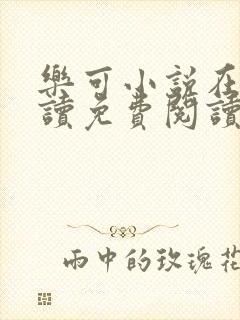 樂可小說在
讀免費閱讀
雨中的玫瑰花